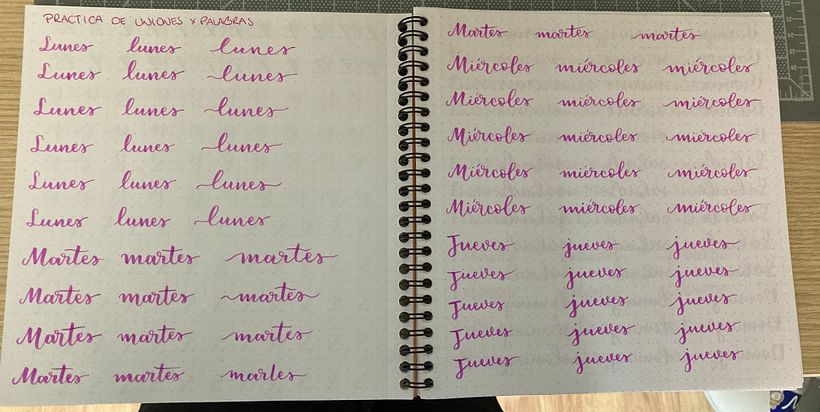 PRACTICA DE UNIONES Y PALABRAS
Lunes lunes lunes
Lunes lunes lunes
Lunes lunes lunes
Lunes lunes lunes
Lunes lunes lunes
Lunes lunes lunes
Martes martes martes
Martes martes martes
Martes martes martes
Martes martes martes
Martes martes martes
Miércoles miércoles miércoles
Miércoles miércoles miércoles
Miércoles miércoles miércoles
Miércoles miércoles miércoles
Miércoles miércoles miércoles
Jueves jueves jueves
Jueves jueves jueves
Jueves jueves jueves
Jueves jueves jueves
Jueves jueves jueves